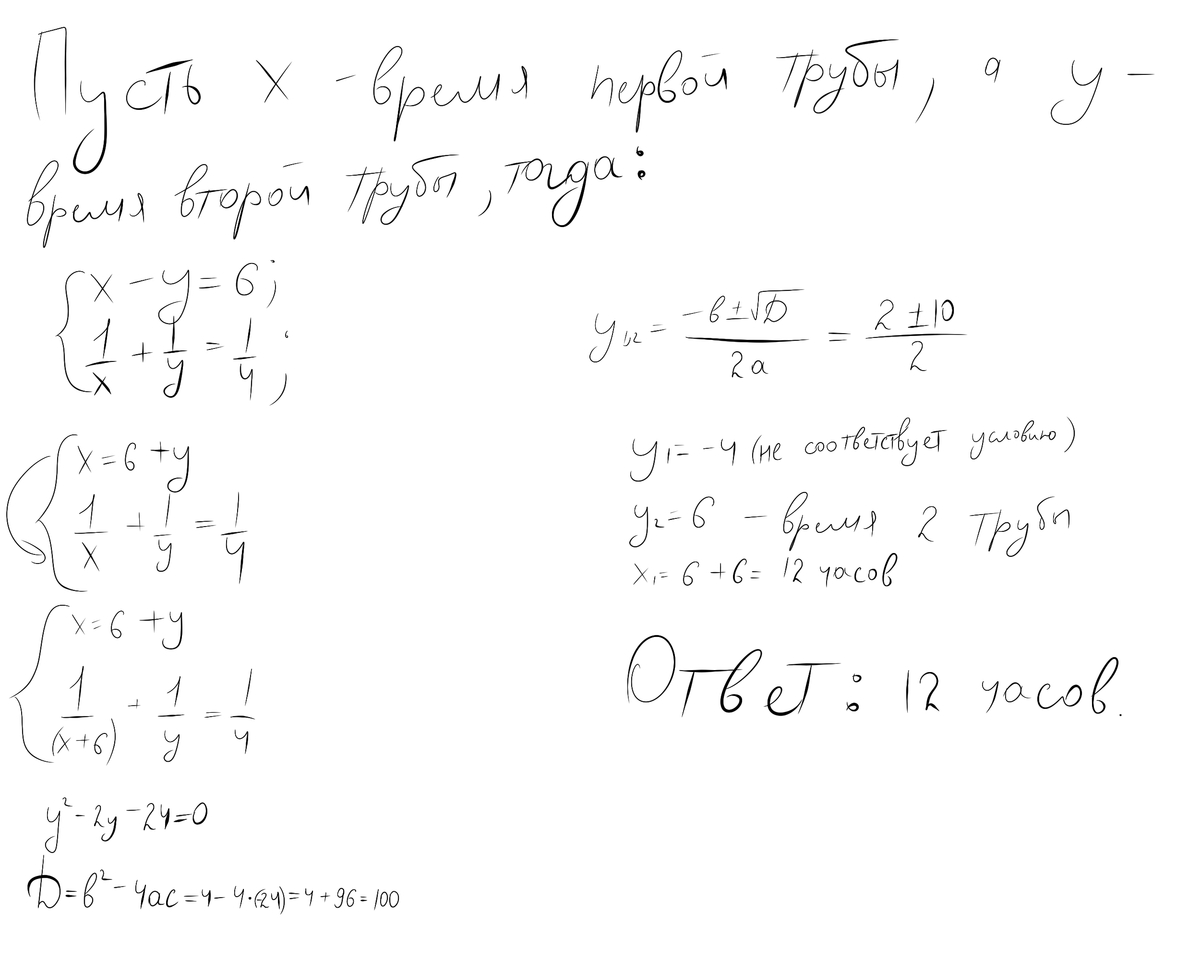 Пусть x - время первой трубы, а y -
время второй трубы, тогда:
{x - y = 6;
1/x + 1/y = 1/4;
{x = 6 + y
1/x + 1/y = 1/4
{x = 6 + y
1/(x+6) + 1/y = 1/4
y² - 2y - 24 = 0
D = b² - 4ac = 4 - 4·(-24) = 4 + 96 = 100
y₁,₂ = (-b ± √D)/2a = (2 ± 10)/2
y₁ = -4 (не соответствует условию)
y₂ = 6 - время 2 трубы
x₁ = 6 + 6 = 12 часов
Ответ: 12 часов.